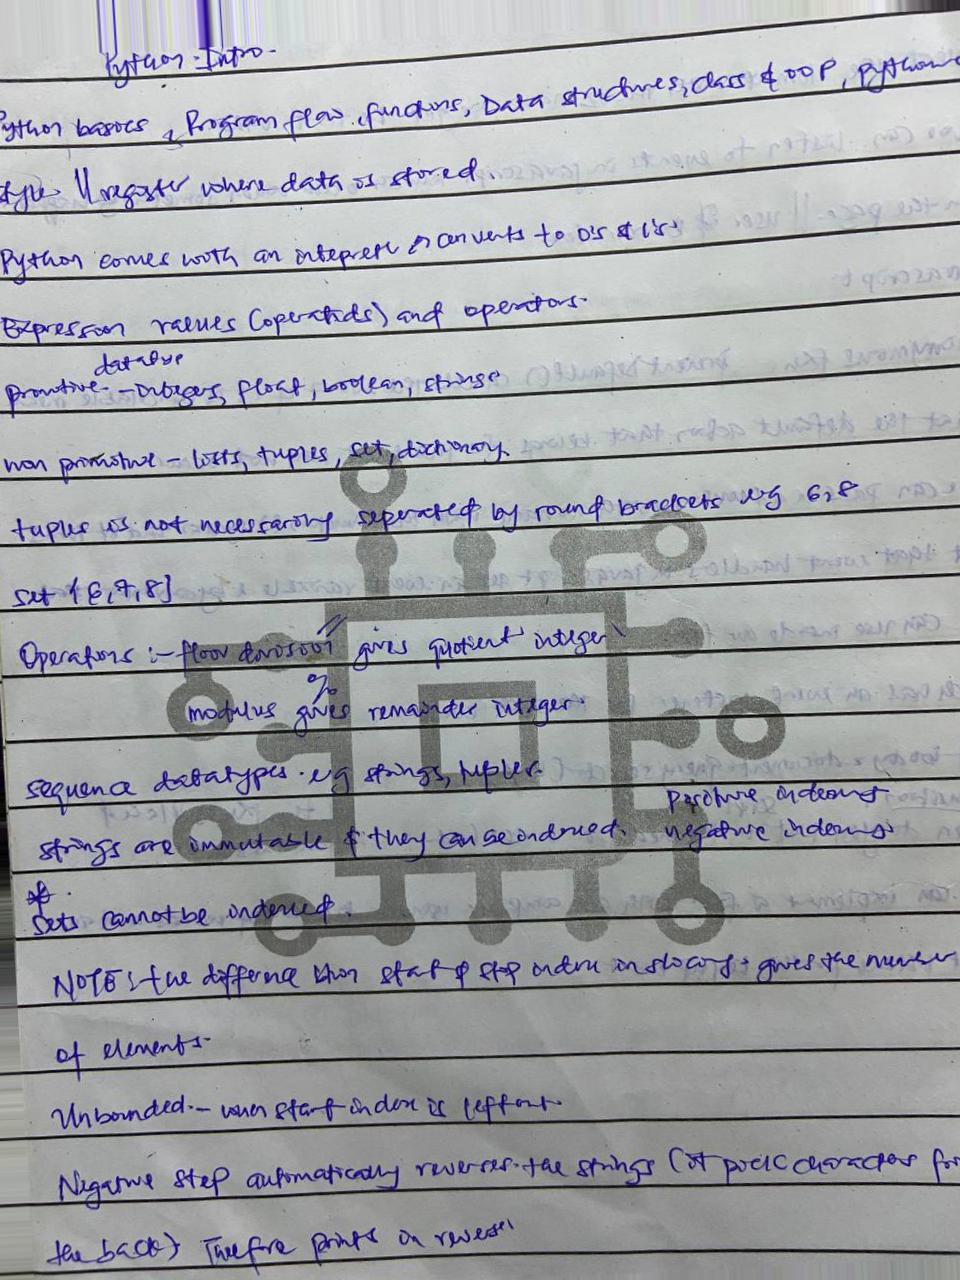 Python Intro.
Python basics, Program flow, functions, Data structures, class & OOP, python
style // register where data is stored.
Python comes with an intepreter converts to 0's & 1's.
Expression values (operands) and operators.
datatype
primitive - integers, float, boolean, strings
non primitive - lists, tuples, set, dictionary
tuples is not necessarily seperated by round brackets eg 6,8
set {6,7,8]
Operators :- floor division // gives quotient integer
%
modulus gives remainder integer.
sequence datatypes. eg strings, tuples.
strings are immutable & they can be indexed. positive indexing
negative indexing
* Sets cannot be indexed.
NOTE: the diffence btwn start & stop index in slicing. gives the number
of elements.
Unbounded - when start index is left out.
Negative step automatically reverses the strings (it pick characters for
the back) Therfore prints in reverse